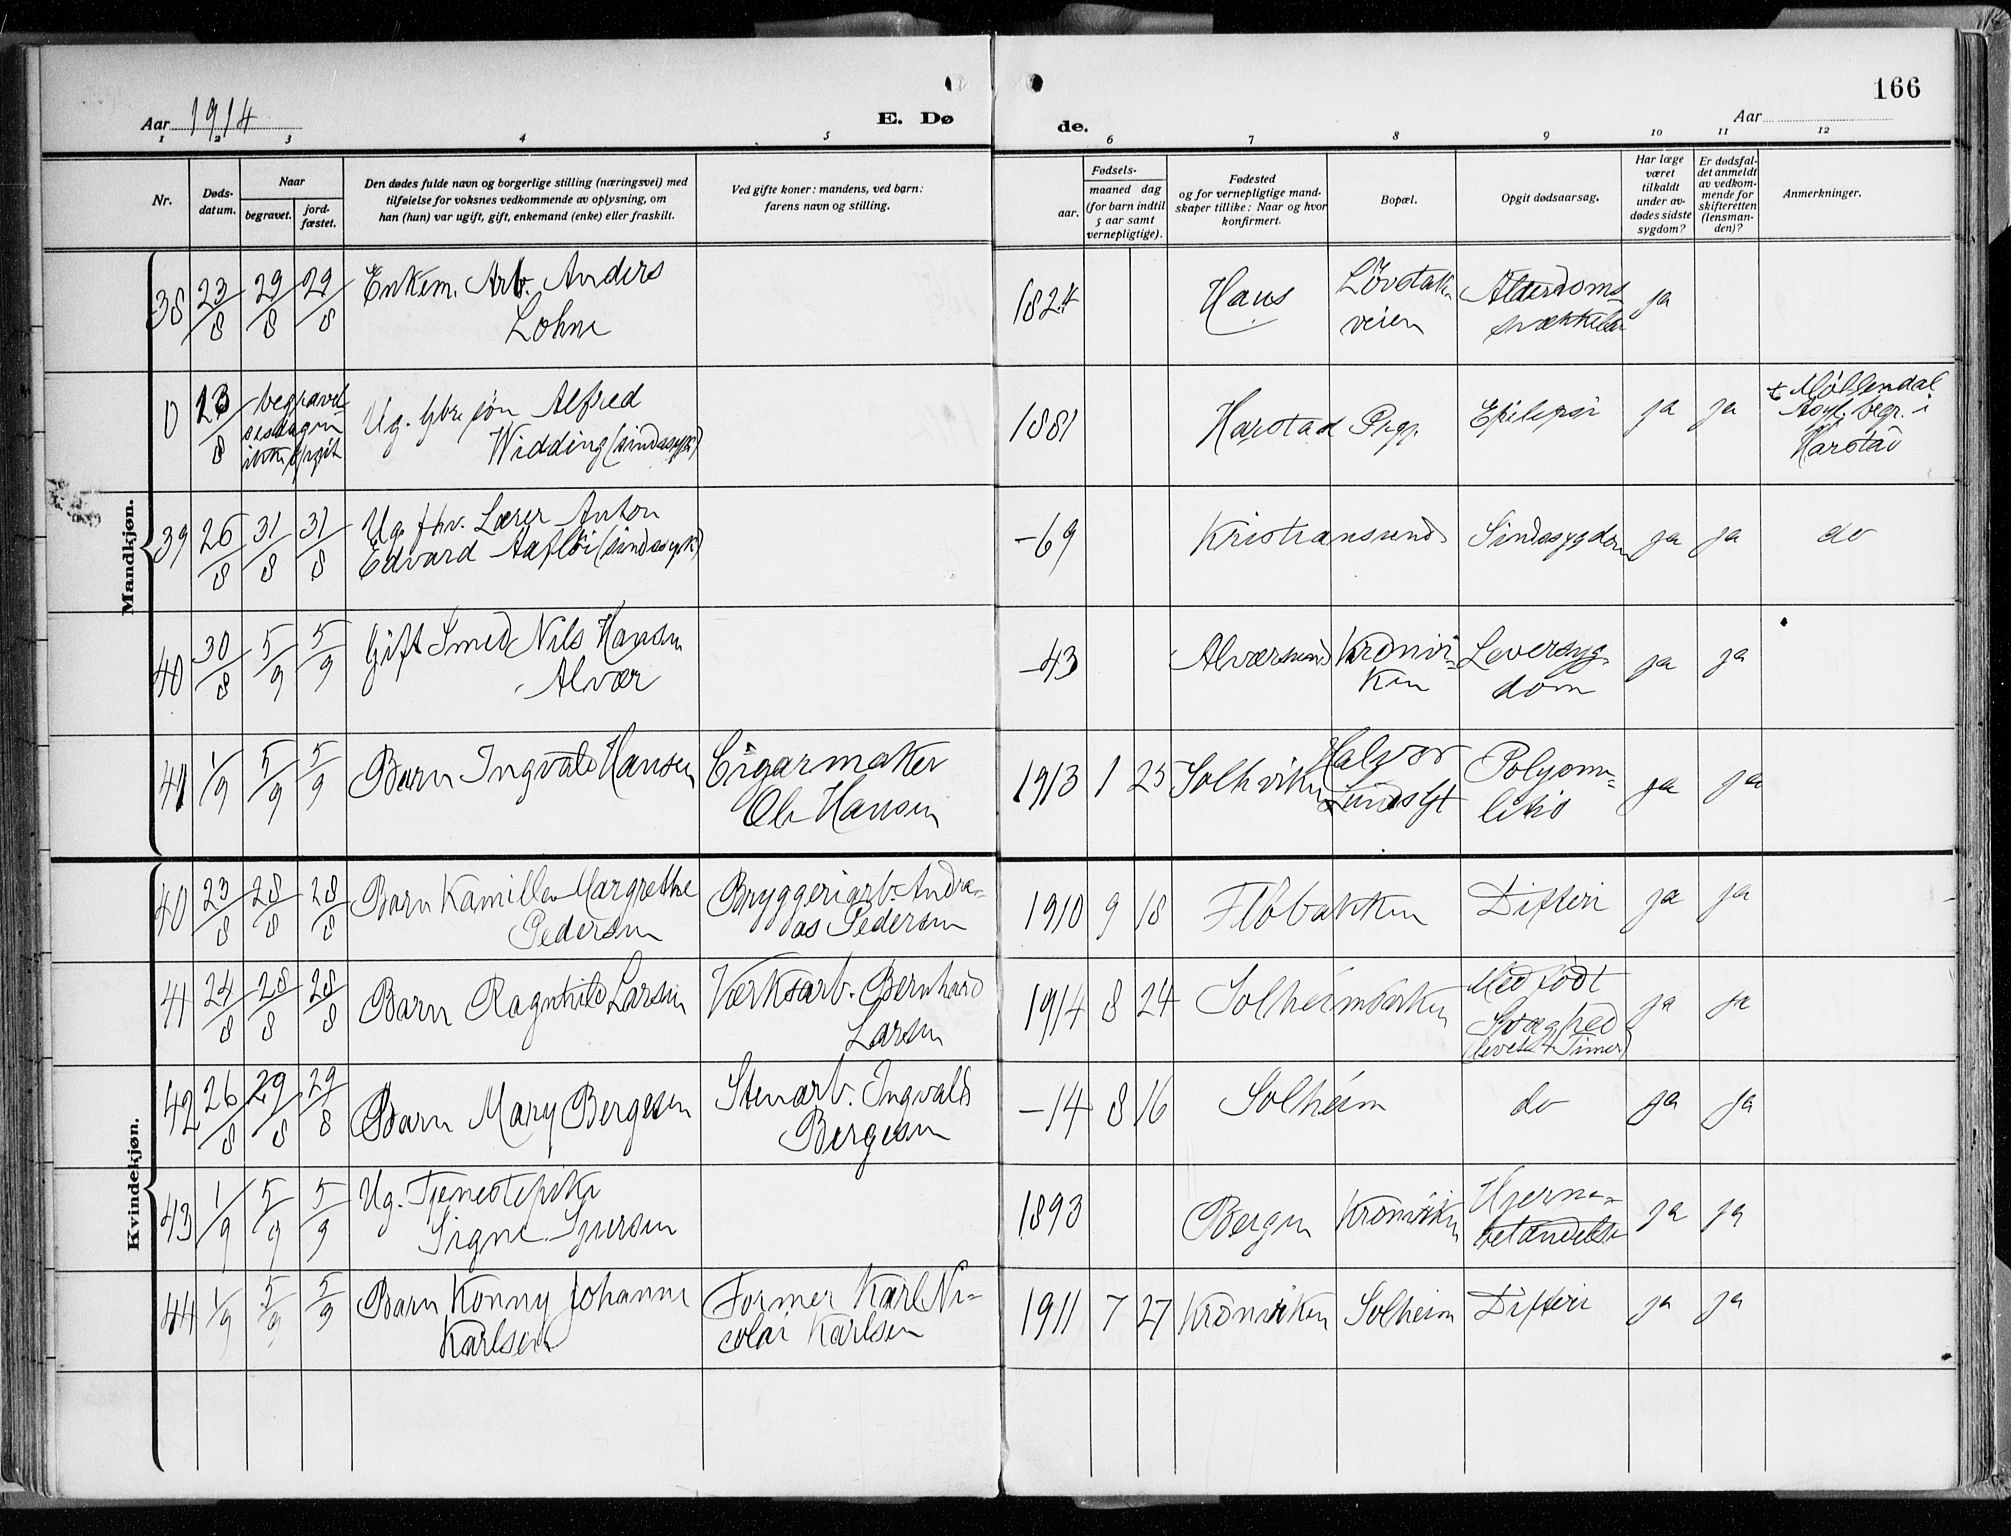 166
Aar 1914
E. Dø
de.
Aar
1 2 3 4 5
6 7 8 9 10 11 12
Nr.
Døds-
datum.
Naar
begravet.
jord-
fæstet.
Den dødes fulde navn og borgerlige stilling (næringsvei) med
tilføielse for voksnes vedkommende av oplysning, om
han (hun) var ugift, gift, enkemand (enke) eller fraskilt.
Ved gifte koner: mandens, ved barn:
farens navn og stilling.
Fødsels-
aar.
maaned dag
(for barn indtil
5 aar samt
vernepligtige).
Fødested
og for vernepligtige mand-
skaper tillike: Naar og hvor
konfirmert.
Bopæl.
Opgit dødsaarsag.
Har læge
været
tilkaldt
under av-
dødes sidste
sygdom?
Er dødsfal-
det anmeldt
av vedkom-
mende for
skifteretten
(lensman-
den)?
Anmerkninger.
Mandkjøn.
38 23/8 29/8 29/8 Enkem. Arb. Anders
Lohne
1824 Haus Løvstak-
veien
Alderdoms-
ja
0 23/8 begravel-
sesdagen
ikke opgit
Ug. Alfred
Widding (sindssyk)
1881 Harstad Epilepsi ja ja
t Møllendal
Asyl, begr. i
Harstad
39 26/8 31/8 31/8 Ug. fhv. Lærer Anton
Edvard (sindssyk)
-69 Kristianssund Sindssygdom ja ja do
40 30/8 5/9 5/9 Gift Smed Nils Hansen
Alvær
-43 Alværsund Kronvi-
ken
Leversyg-
dom
ja ja
41 1/9 5/9 5/9 Barn Ingvald Hansen Cigarmaker
Ole Hansen
1913 1 25 Solhviken Halvor
ja ja
Kvindekjøn.
40 23/8 28/8 28/8 Barn Kamilla Margrethe
Pedersen
Bryggeriarb. Andre-
as Pedersen
1910 9 18 Fløbakken Difteri ja ja
41 24/8 28/8 28/8 Barn Ragnhild Larsen Værksarb. Bernhard
Larsen
1914 8 24 Solheimsviken Medfødt
Svaghed
(levet 4 Timer)
ja ja
42 26/8 29/8 29/8 Barn Mary Bergesen Stenarb. Ingvald
Bergesen
-14 8 16 Solheim do ja ja
43 1/9 5/9 5/9 Ug. Tjenestepike
Signe Iversen
1893 Bergen Kronviken Hjerne-
betændelse
ja ja
44 1/9 5/9 5/9 Barn Konny Johanne
Karlsen
Former Karl Ni-
colai Karlsen
1911 7 27 Kronviken Solheim Difteri ja ja